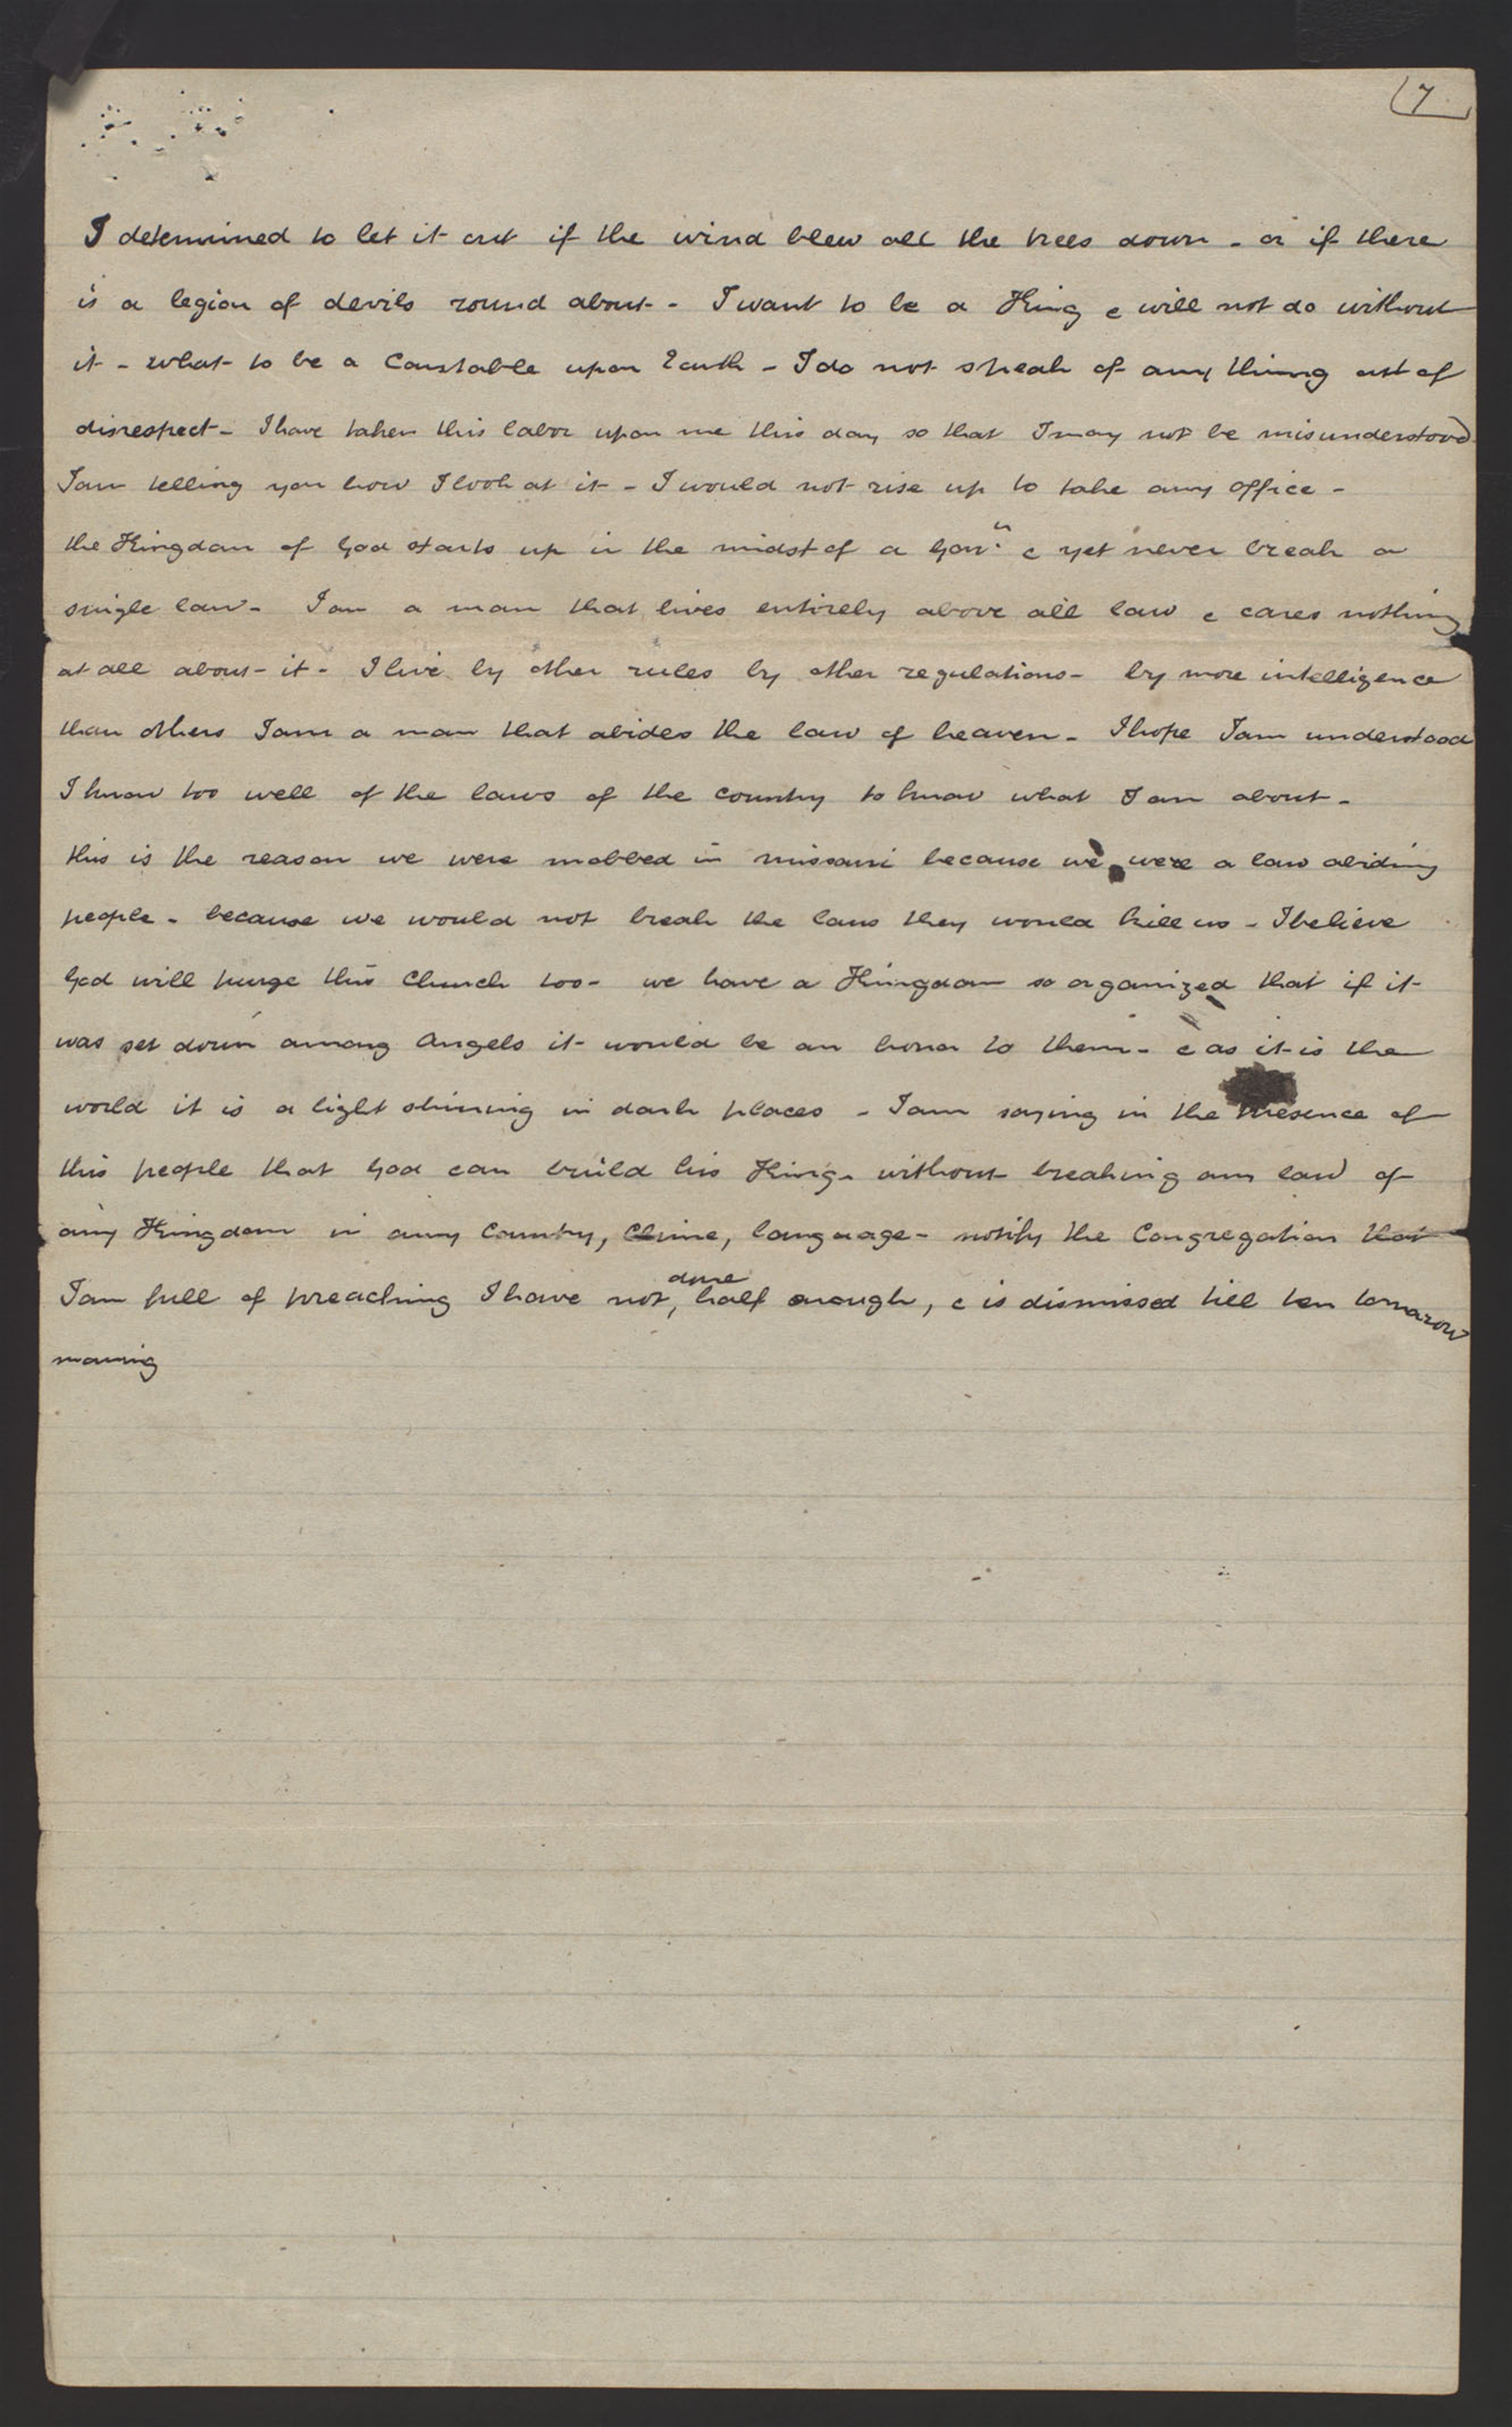 7
I determined to let it out if the wind blew all the trees down - or if there
is a legion of devils round about - I want to be a King & will not do without
it - what to be a Constable upon Earth - I do not speak of any thing out of
disrespect - I have taken this labor upon me this day so that I may not be misunderstood
I am telling you how I look at it - I would not rise up to take any office -
the Kingdom of God starts up in the midst of a Gov.n & yet never break a
single law - I am a man that lives entirely above all law & cares nothing
at all about it - I live by other rules by other regulations - by more intelligence
than others I am a man that abides the law of heaven - I hope I am understood
I know too well of the laws of the country to know what I am about -
this is the reason we were mobbed in missouri because we were a law abiding
people - because we would not break the laws they would kill us - I believe
God will purge this Church too - we have a Kingdom so organized that if it
was set down among Angels it would be an honor to them - & as it is the
world it is a light shining in dark places - I am saying in the presence of
this people that God can build his King. without breaking any law of
any Kingdom in any Country, Clime, language - notify the Congregation that
I am full of preaching I have not, done half enough, & is dismissed till ten tomarow
morning